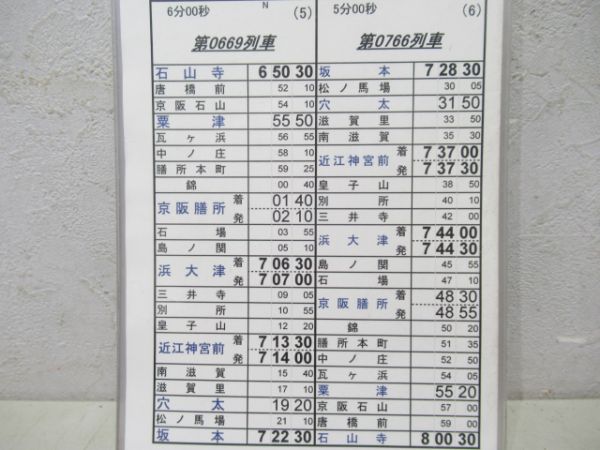 6分00秒 N (5)
第0669列車
石山寺 6 50 30
唐橋前 52 10
京阪石山 54 10
粟津 55 50
瓦ヶ浜 56 55
中ノ庄 58 10
膳所本町 59 25
錦 00 40
京阪膳所 着 01 40
発 02 10
石場 03 55
島ノ関 05 10
浜大津 着 7 06 30
発 7 07 00
三井寺 09 05
別所 10 55
皇子山 12 20
近江神宮前 着 7 13 30
発 7 14 00
南滋賀 15 40
滋賀里 17 10
穴太 19 20
松ノ馬場 21 10
坂本 7 22 30
5分00秒 (6)
第0766列車
坂本 7 28 30
松ノ馬場 30 05
穴太 31 50
滋賀里 33 50
南滋賀 35 30
近江神宮前 着 7 37 00
発 7 37 30
皇子山 38 50
別所 40 10
三井寺 42 00
浜大津 着 7 44 00
発 7 44 30
島ノ関 45 55
石場 47 10
京阪膳所 着 48 30
発 48 55
錦 50 20
膳所本町 51 35
中ノ庄 52 50
瓦ヶ浜 54 05
粟津 55 20
京阪石山 57 00
唐橋前 59 00
石山寺 8 00 30